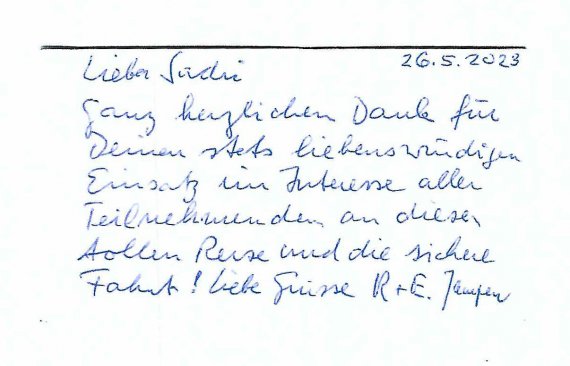 26.5.2023
Lieber Sadri
Ganz herzlichen Dank für
Deinen stets liebenswürdigen
Einsatz im Interesse aller
Teilnehmenden an dieser
tollen Reise und die sichere
Fahrt! Liebe Grüsse R+E.